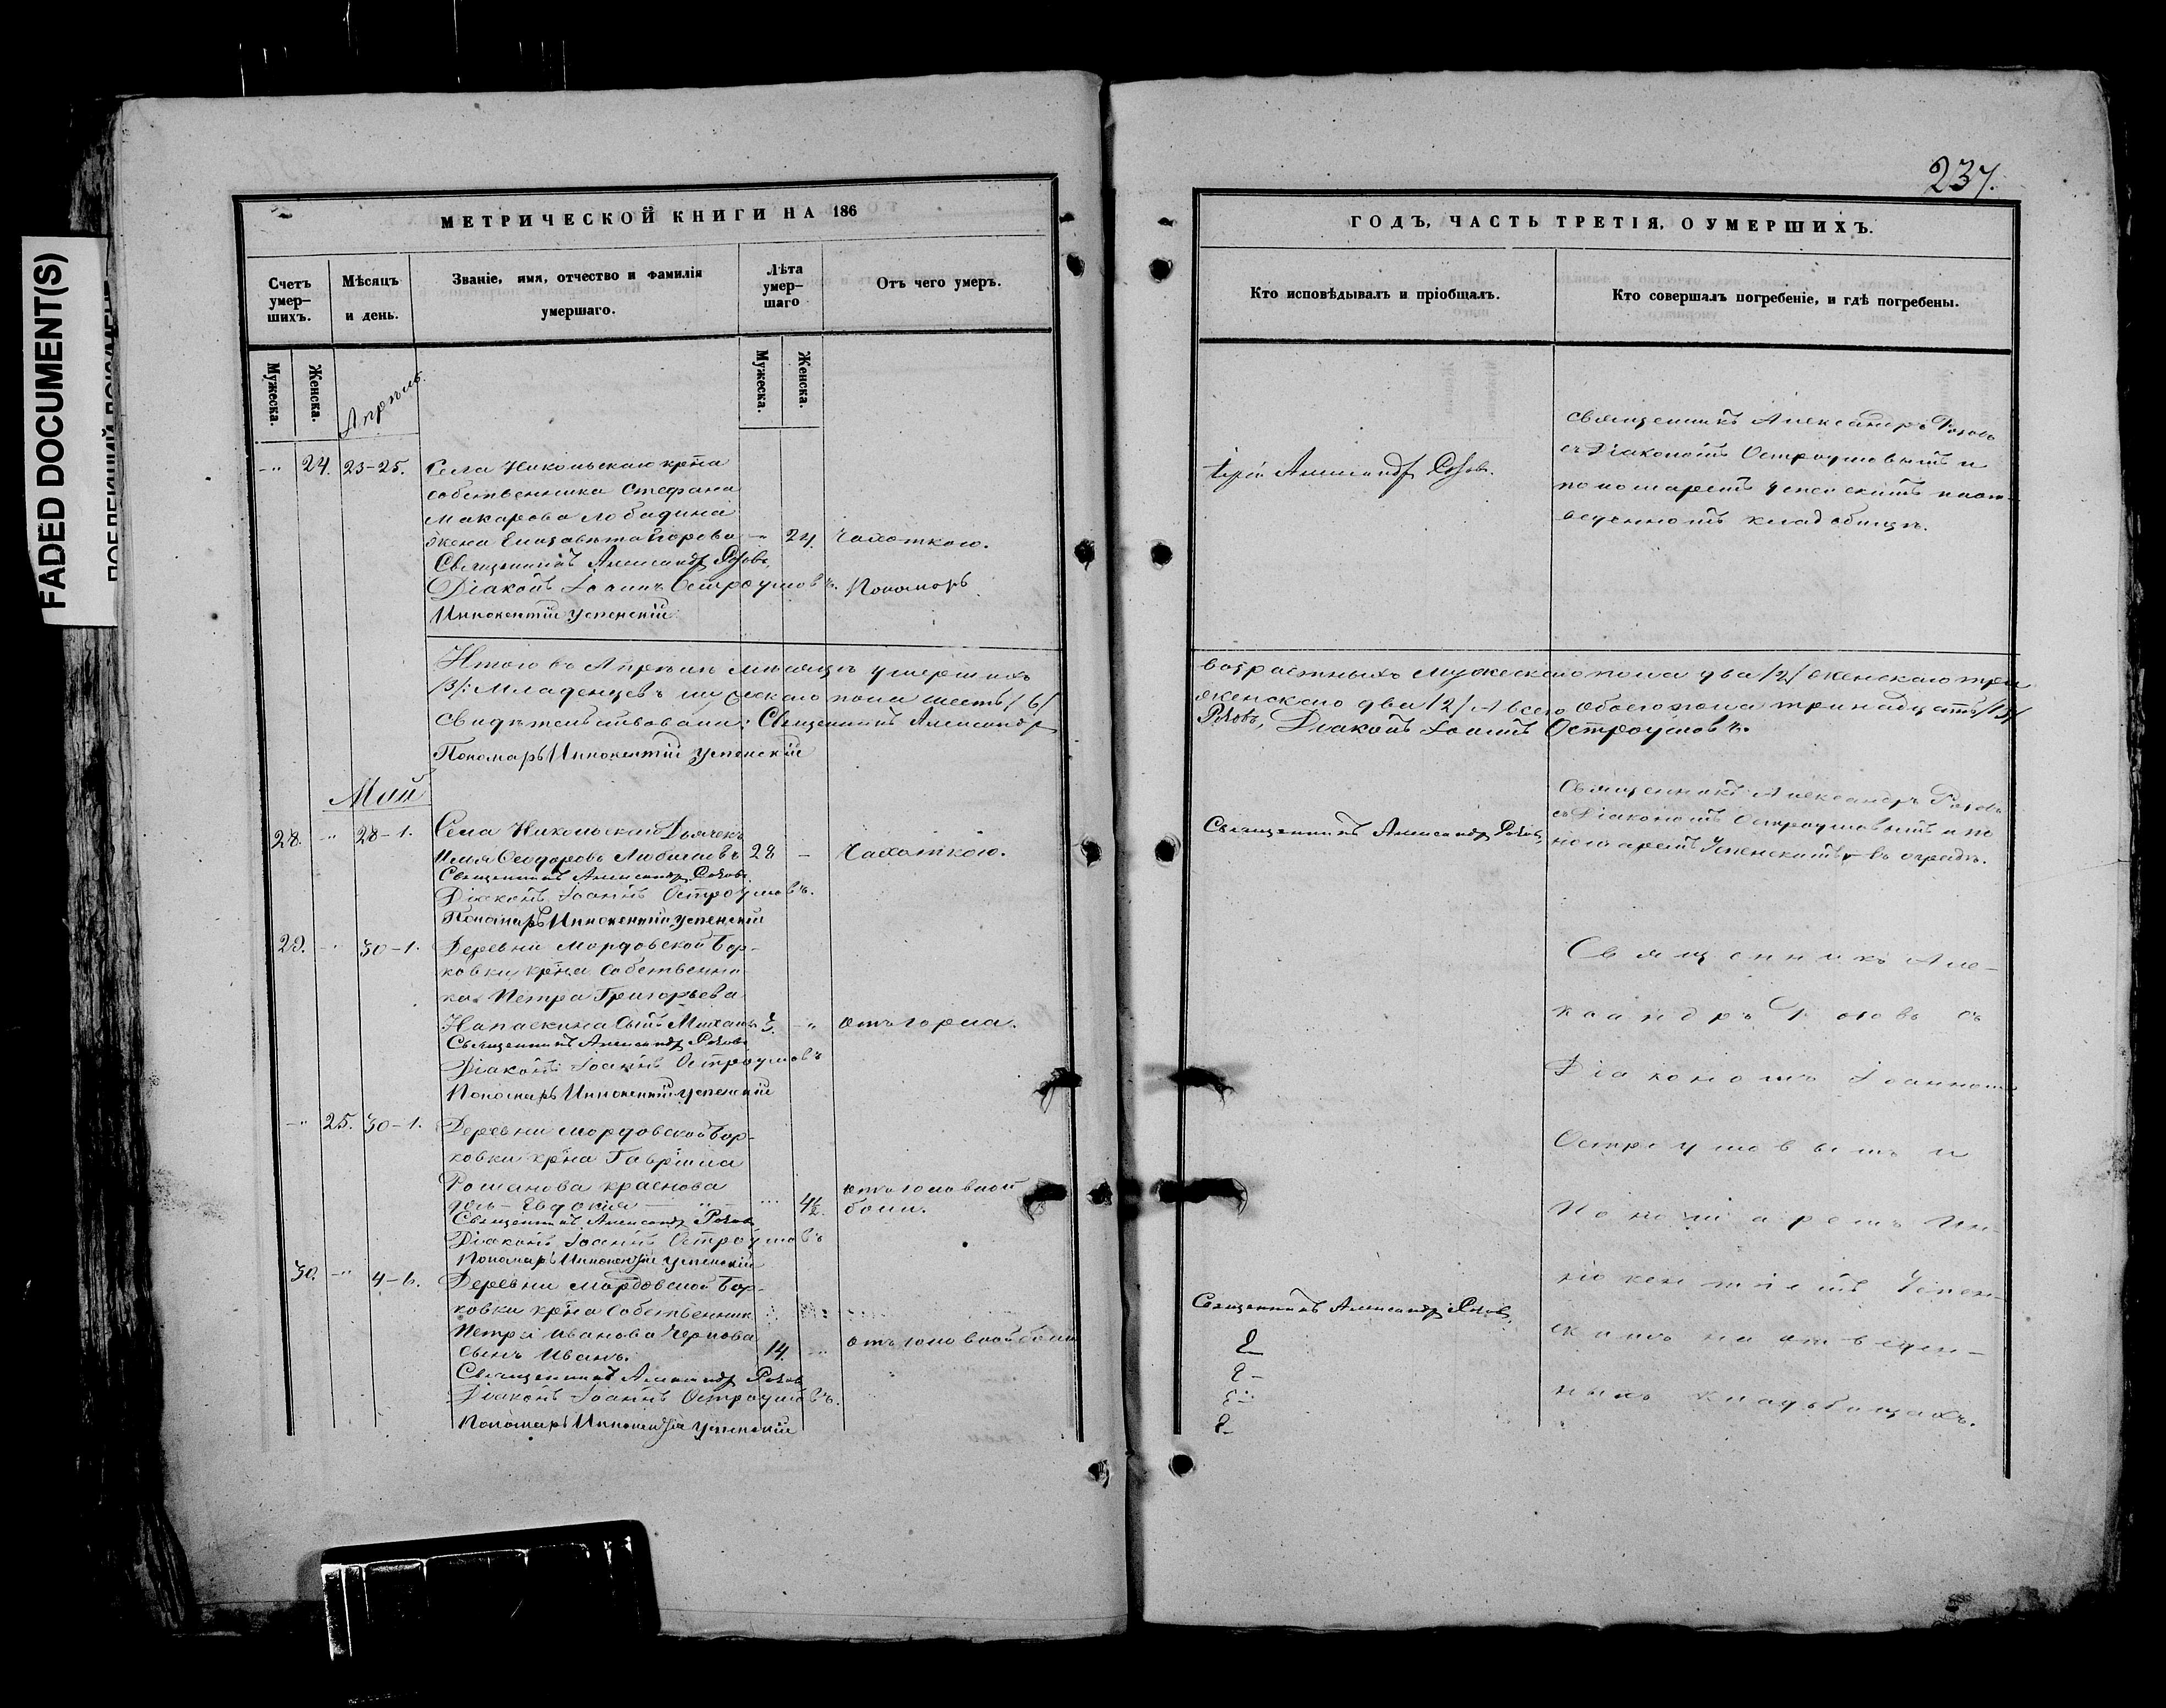 FADED DOCUMENT(S)
237.
МЕТРИЧЕСКОЙ КНИГИ НА 186
Счетъ умер-
шихъ.
Мѣсяцъ
и день.
Званіе, имя, отчество и фамилія
умершаго.
Лѣта
умер-
шаго
Отъ чего умеръ.
Мужеска.
Женска.
Апрѣль.
Мужеска.
Женска.
24. 23-25. Села Никольскаго крⷭ҇на
собственника Стефана
Макарова Лобадина
жена Елизавета Егорова 24. Чахоткою.
Священникъ Александръ Розовъ,
Діаконъ Іоаннъ Остроумовъ. Пономарь
Иннокентій Успенскій
Итого въ Апрѣлѣ мѣсяцѣ умершихъ
/3/: Младенцевъ мужескаго пола шесть /6/
Свидѣтельствовали: Священникъ Александръ
Пономарь Иннокентій Успенскій
Май
28. 28-1. Села Никольскаго Дьячекъ
Илья Ѳеодоровъ Любимовъ 28 - Чахоткою.
Священникъ Александръ Розовъ.
Діаконъ Іоаннъ Остроумовъ.
Пономарь Иннокентій Успенскій
29. 30-1. Деревни Мордовской Бор-
ковки крⷭ҇на Собственни
ка Петра Григорьева
сынъ Михаилъ отъ горла.
Священникъ Александръ Розовъ
Діаконъ Іоаннъ Остроумовъ
Пономарь Иннокентій Успенскій
25. 30-1. Деревни Мордовской Бор-
ковки крⷭ҇на Гавріила
Романова Краснова
дочь - Евдокія отъ головной
боли.
Священникъ Александръ Розовъ
Діаконъ Іоаннъ Остроумовъ
Пономарь Иннокентій Успенскій
30. 4-6. Деревни Мордовской Бор-
ковки крⷭ҇на Собственник
Петра Иванова Чернова
сынъ Иванъ. 14. отъ головной боли
Священникъ Александръ Розовъ
Діаконъ Іоаннъ Остроумовъ.
Пономарь Иннокентій Успенскій
ГОДЪ, ЧАСТЬ ТРЕТІЯ, О УМЕРШИХЪ.
Кто исповѣдывалъ и пріобщалъ.
Кто совершалъ погребеніе, и гдѣ погребены.
Іерей Александръ Розовъ.
Священникъ Александръ Розовъ
съ Діакономъ Остроумовымъ и
пономаремъ Успенскимъ на от-
веденномъ кладбищѣ.
возрастныхъ мужескаго пола два /2/ женскаго три
женскаго два /2/ А всего обоего пола тринадцать /13/
Розовъ, Діаконъ Іоаннъ Остроумовъ.
Священникъ Александръ Розовъ,
Священникъ Александръ Розовъ
съ Діакономъ Остроумовымъ и по
номаремъ Успенскимъ въ оградѣ.
Священникъ Але-
ксандръ Розовъ съ
Діакономъ Іоанномъ
Остроумовымъ и
Пономаремъ Ин-
нокентіемъ Успен-
скимъ на отведен-
ныхъ кладбищахъ.
Священникъ Александръ Розовъ,